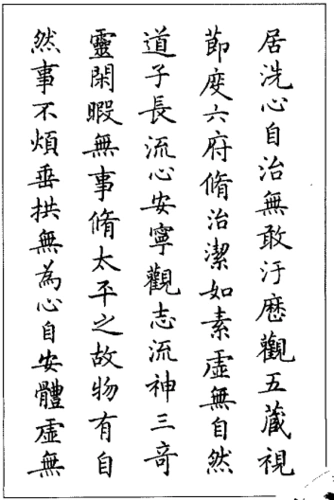 居洗心自治無敢汙歷觀五藏視
節度六府脩治潔如素虛無自然
道子長流心安寧觀志流神三奇
靈閑暇無事脩太平之故物有自
然事不煩垂拱無為心自安體虛無